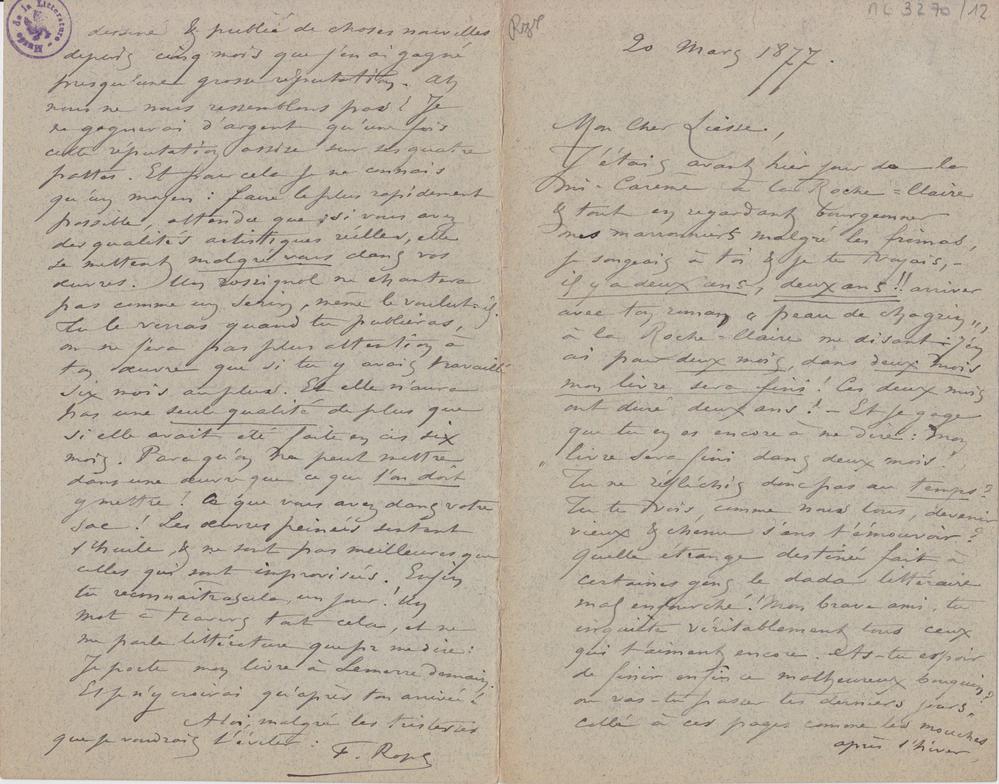 ML 3270/12
Rops
20 Mars 1877.
Mon Cher Liesse,
J'étais avant hier jour de la
Mi-Carême à la Roche-Claire
& tout en regardant bourgeonner
mes marronniers malgré les frimas,
je songeais à toi & je te voyais, -
il y a deux ans, deux ans!! arriver
avec ton roman « peau de chagrin »,
à la Roche-Claire me disant: j'en
ai pour deux mois, dans deux mois
mon livre sera fini! Ces deux mois
ont duré deux ans! - Et je gage
que tu en es encore à me dire: "mon
"livre sera fini dans deux mois!"
Tu ne réfléchis donc pas au temps?
Tu te vois, comme nous tous, devenir
vieux & chenu sans t'émouvoir?
quelle étrange destinée fait à
certaines gens le dada littéraire
mal enfourché! Mon brave ami, tu
inquiète véritablement tous ceux
qui t'aiment encore. As-tu espoir
de finir enfin ce malheureux bouquin?
ou vas-tu passer tes derniers jours,
collé à ces pages comme les mouches
après l'hiver,
dessiné & publié de choses nouvelles
depuis cinq mois que j'en ai gagné
presqu'une grosse réputation. Ah
nous ne nous ressemblons pas! Je
ne gagnerai d'argent qu'une fois
cette réputation assise sur ses quatre
pattes. Et pour cela je ne connais
qu'un moyen: faire le plus rapidement
possible, attendu que si vous avez
des qualités artistiques réelles, elle
se mettent malgré vous dans vos
œuvres. Un rossignol ne chantera
pas comme un serin, même le voulut-il.
Tu le verras quand tu publieras,
on ne fera pas plus attention à
ton œuvre que si tu y avais travaillé
six mois au plus. Et elle n'aura
pas une seule qualité de plus que
si elle avait été faite en ces six
mois. Parcequ'on ne peut mettre
dans une œuvre que ce que l'on doit
y mettre! Ce que vous avez dans votre
sac! Les œuvres peinées sentent
l'huile, & ne sont pas meilleures que
celles qui sont improvisées. Enfin
tu reconnaitras cela, un jour! Un
mot à travers tout cela, et ne
me parle littérature que pr me dire:
Je porte mon livre à Lemerre demain,
Et je n'y croirai qu'après ton arrivée!
A toi, malgré les tristesses
que je voudrais t'éviter:
F. Rops